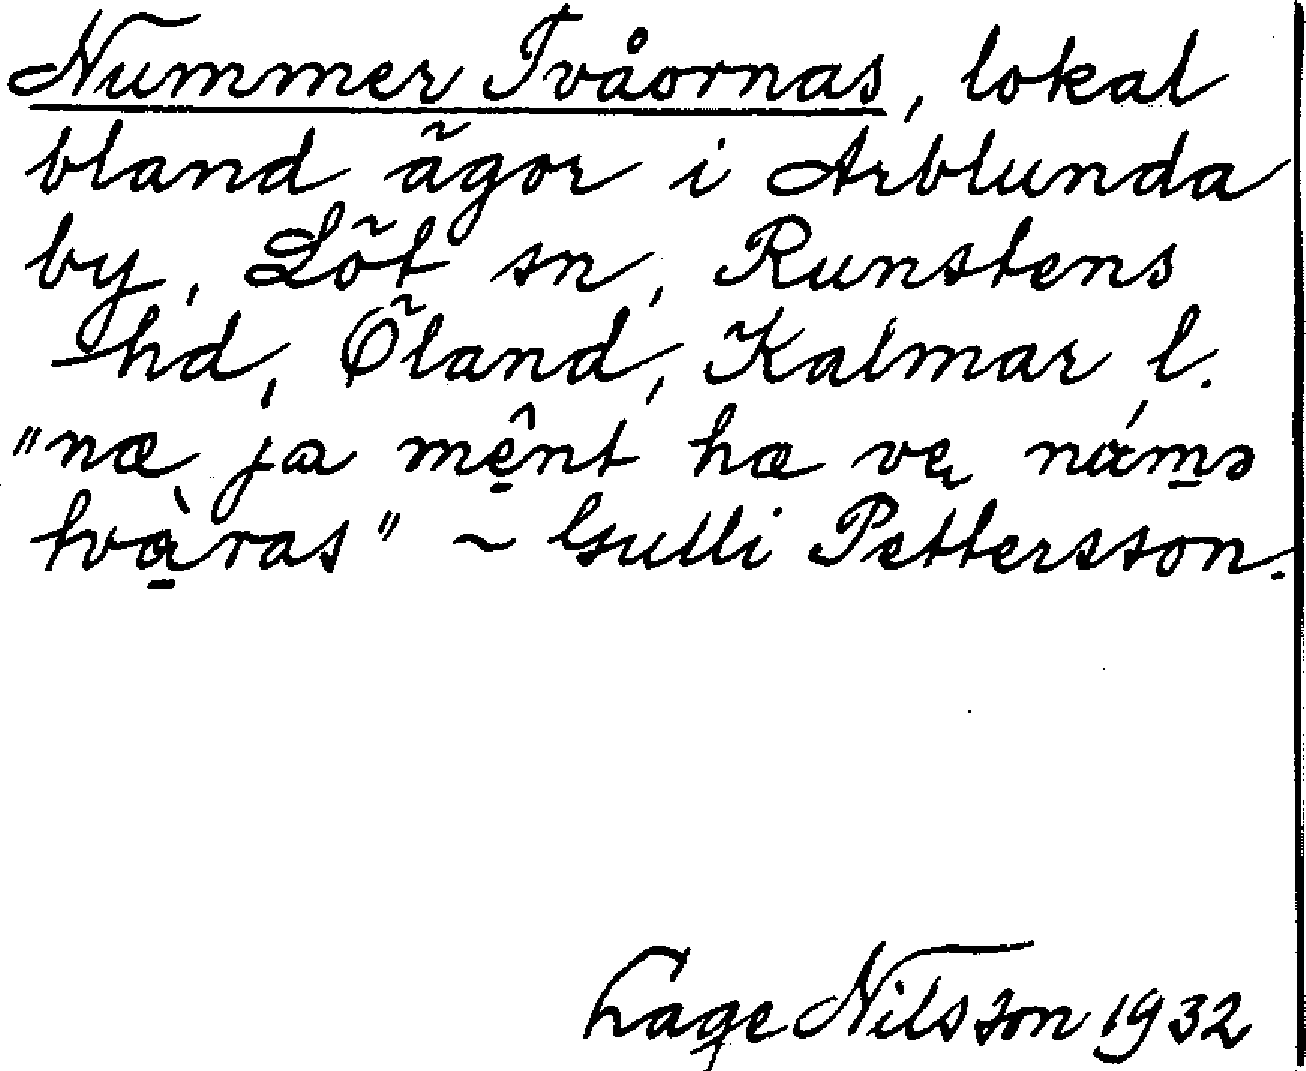 Nummer Tvåornas, lokal
bland ägor i Arblunda
by, Löt sn, Runstens
hd, Öland, Kalmar l.
"næ ja mênt hæ ve námə
tvàras" ~ Gulli Pettersson.
Lage Nilsson 1932